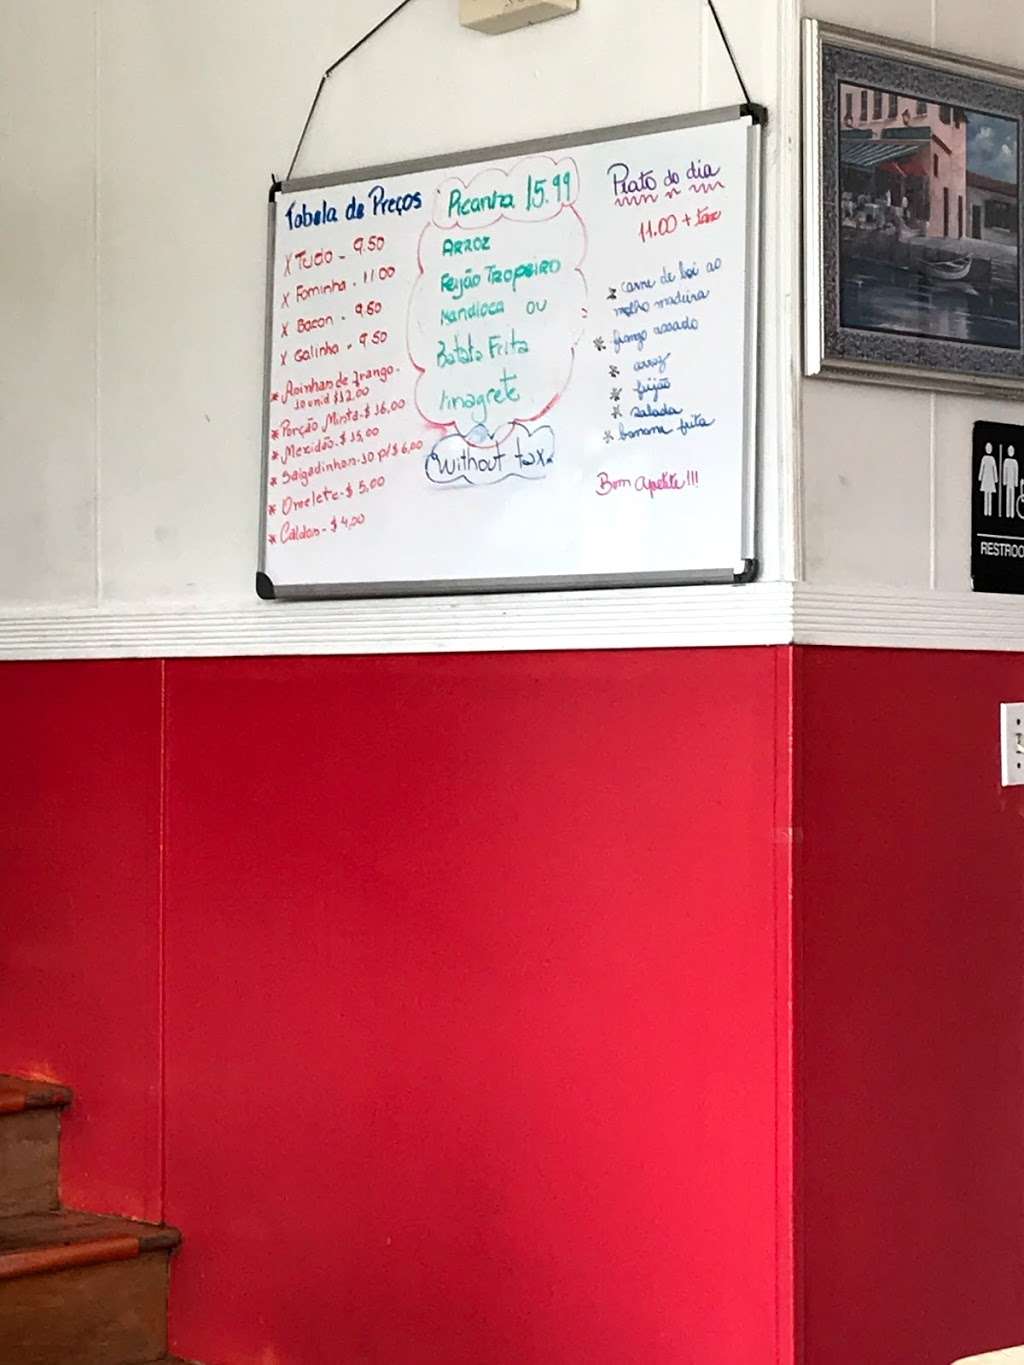 Tabela de Preços
X Tudo - 9.50
X Fominha - 11.00
X Bacon - 9.50
X Galinha - 9.50
* Asinhas de frango -
10 unid $12.00
* Porção Mista - $ 16,00
* Mexidão - $ 15,00
* Salgadinhos - 10 p/ $ 6,00
* Omelete - $ 5,00
* Caldos - $ 4,00
Picanha 15.99
Arroz
Feijão Tropeiro
Mandioca ou
Batata Frita
Vinagrete
Without tax
Prato do dia
11.00 + tax
* carne de boi ao
molho madeira
* frango assado
* arroz
* feijão
* salada
* banana frita
Bom apetite!!!
RESTROO